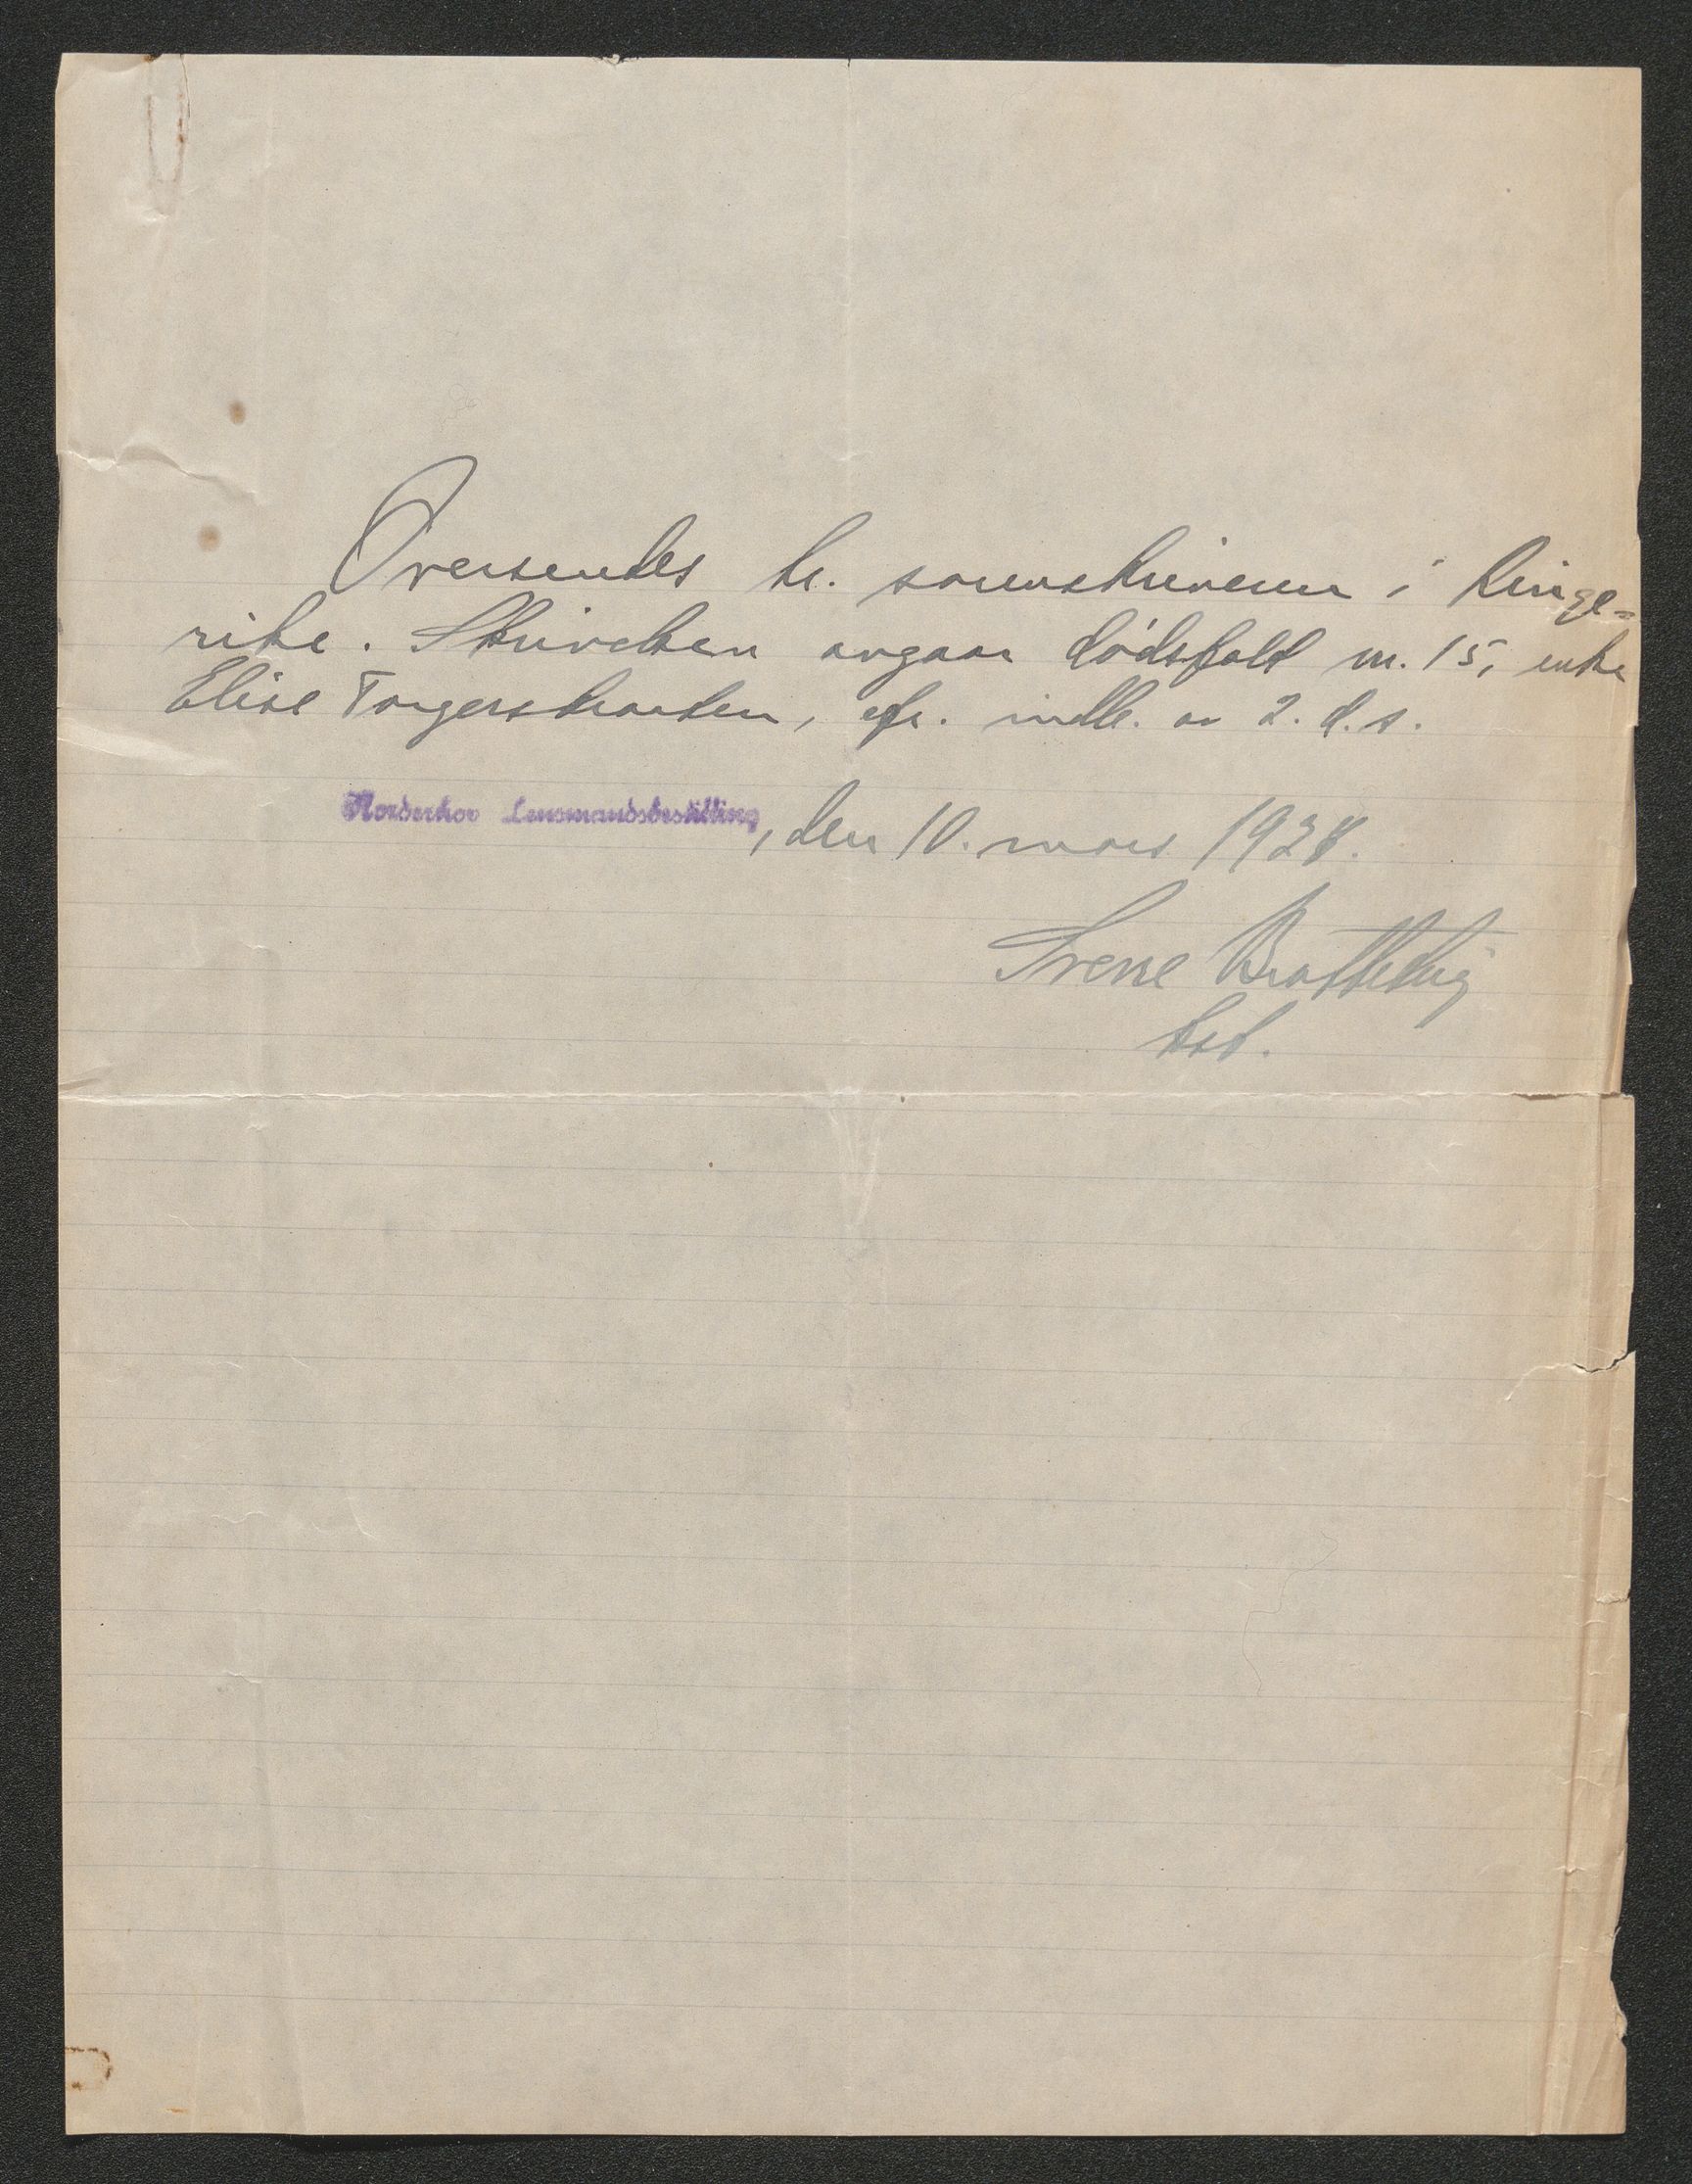 Oversendes hr. sorenskriveren i Ringe=
rike. Skrivelsen angaar dødsfald nr. 15, enke
Elise Torgersbraaten, cfr. indb. av 2. d.s.
Norderhov Lensmandsbestilling, den 10. mars 1928.
Sverre Brattebø
bst.